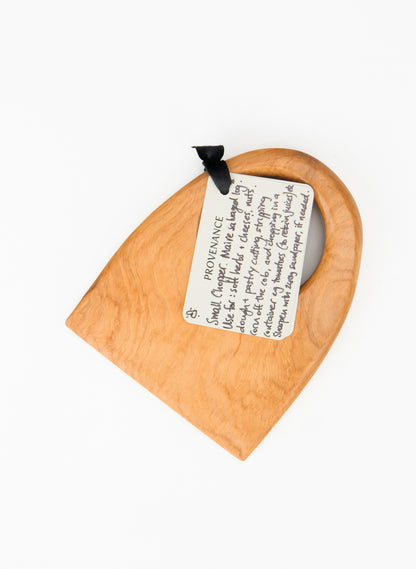 PROVENANCE
Small Chopper. Maire salvaged log.
Use for: soft herbs + cheeses, nuts.
dough + pastry cutting, stripping
corn off the cob, and chopping in a
container eg tomatoes (to retain juices) etc
Sharpen with sandpaper, if needed.